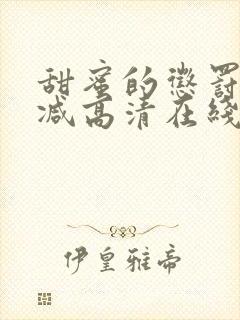 甜蜜的懲罰
减高清在綫
伊皇雅帝